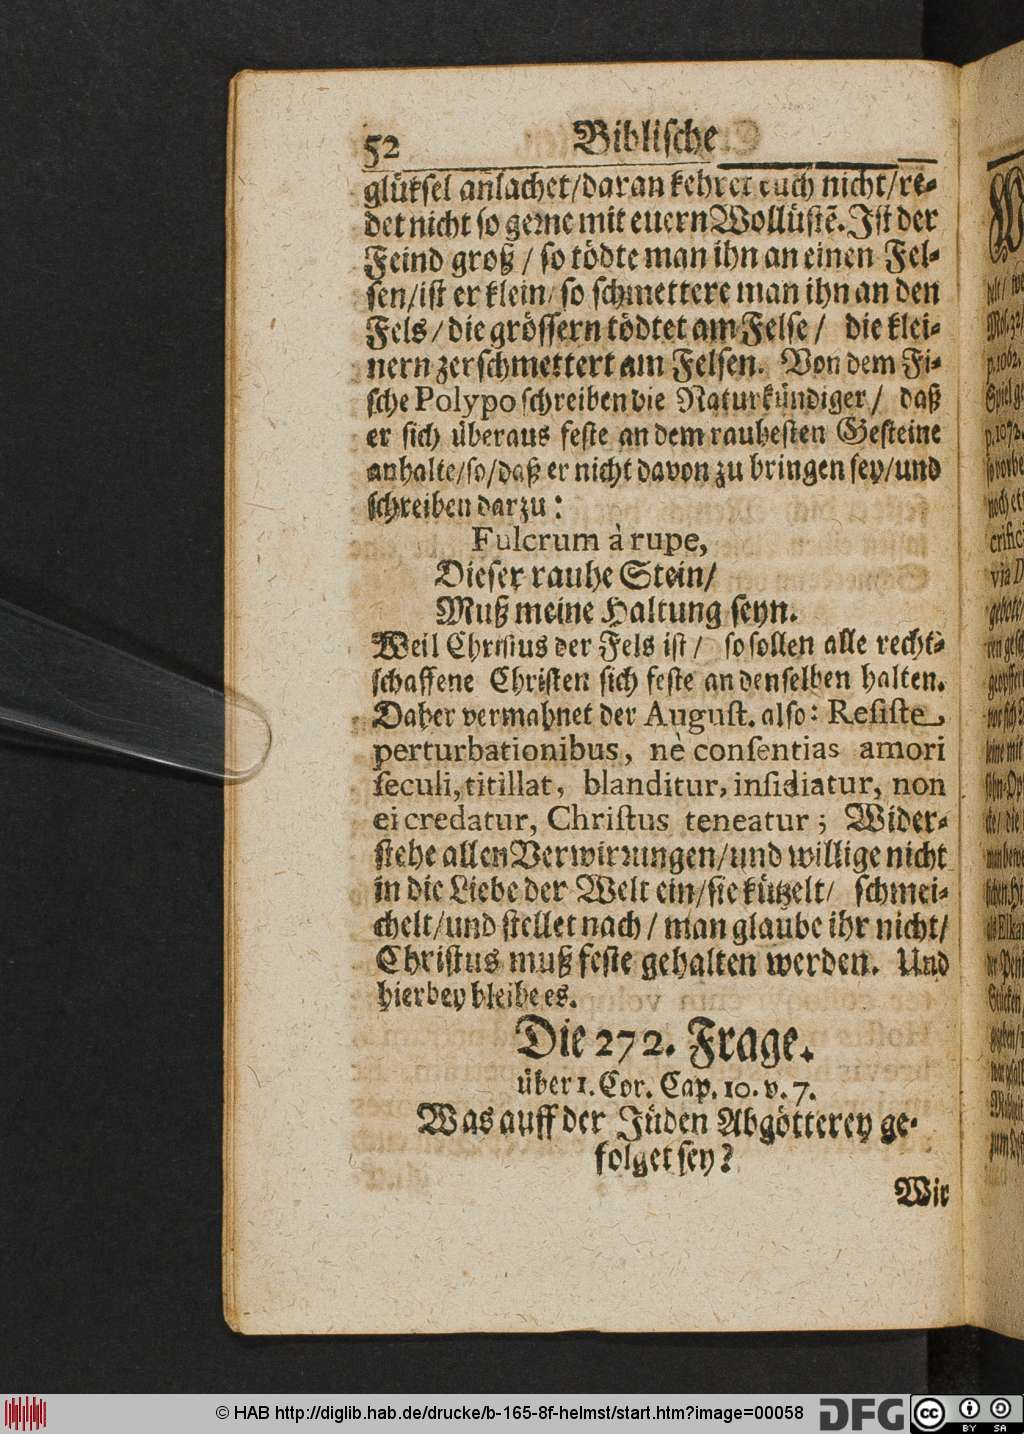 52 Biblische
glükſel anlachet/daran kehret euch nicht/re-
det nicht ſo gerne mit euern Wollüſtē. Iſt der
Feind groß / ſo tödte man ihn an einen Fel-
ſen/iſt er klein/ ſo ſchmettere man ihn an den
Fels/ die gröſſern tödtet am Felſe / die klei-
nern zerſchmettert am Felſen. Von dem Fi-
ſche Polypo ſchreiben die Naturkündiger/ daß
er ſich überaus feſte an dem rauheſten Geſteine
anhalte/ſo/daß er nicht davon zu bringen ſey/und
ſchreiben darzu:
Fulcrum à rupe,
Dieſer rauhe Stein/
Muß meine Haltung ſeyn.
Weil Chriſtus der Fels iſt / ſo ſollen alle recht-
ſchaffene Chriſten ſich feſte an denſelben halten.
Daher vermahnet der Auguſt. alſo: Reſiſte
perturbationibus, nè conſentias amori
ſeculi, titillat, blanditur, inſidiatur, non
ei credatur, Chriſtus teneatur; Wider-
ſtehe allen Verwirrungen/und willige nicht
in die Liebe der Welt ein/ſie kützelt/ ſchmei-
chelt/und ſtellet nach / man glaube ihr nicht/
Chriſtus muß feſte gehalten werden. Und
hierbey bleibe es.
Die 272. Frage.
über 1. Cor. Cap. 10. v. 7.
Was auff der Jüden Abgötterey ge-
folget ſey?
Wir
© HAB http://diglib.hab.de/drucke/b-165-8f-helmst/start.htm?image=00058 DFG cc BY SA